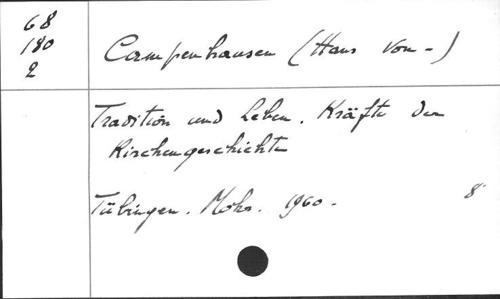 68
180
2
Campenhausen (Hans von-)
Tradition und Leben. Kräfte der
Kirchengeschichte
Tübingen. Mohr. 1960. 8°